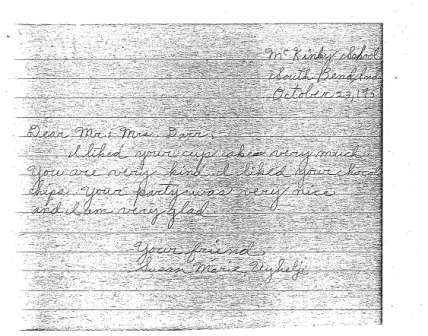 Mc Kinley School
South Bend, Ind
October 23, 195
Dear Mr. & Mrs. Darr,
I liked your cup cakes very much.
You are very kind. I liked your
chips. Your party was very nice
and I am very glad.
Your friend,
Susan Marie